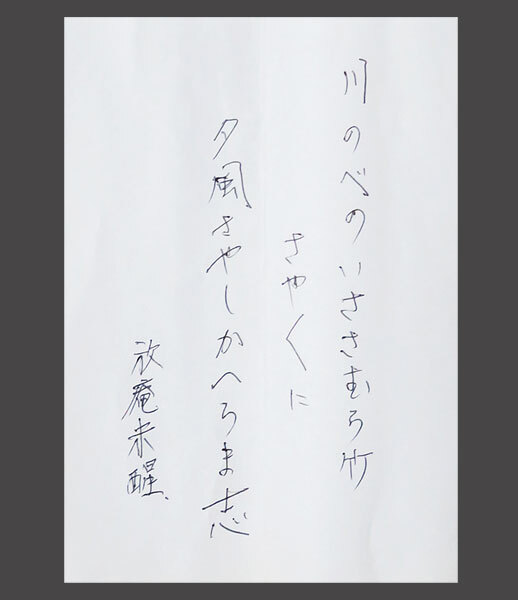 川のべのいささむら竹
さやくに
夕風さやしかへろま志
放庵未醒